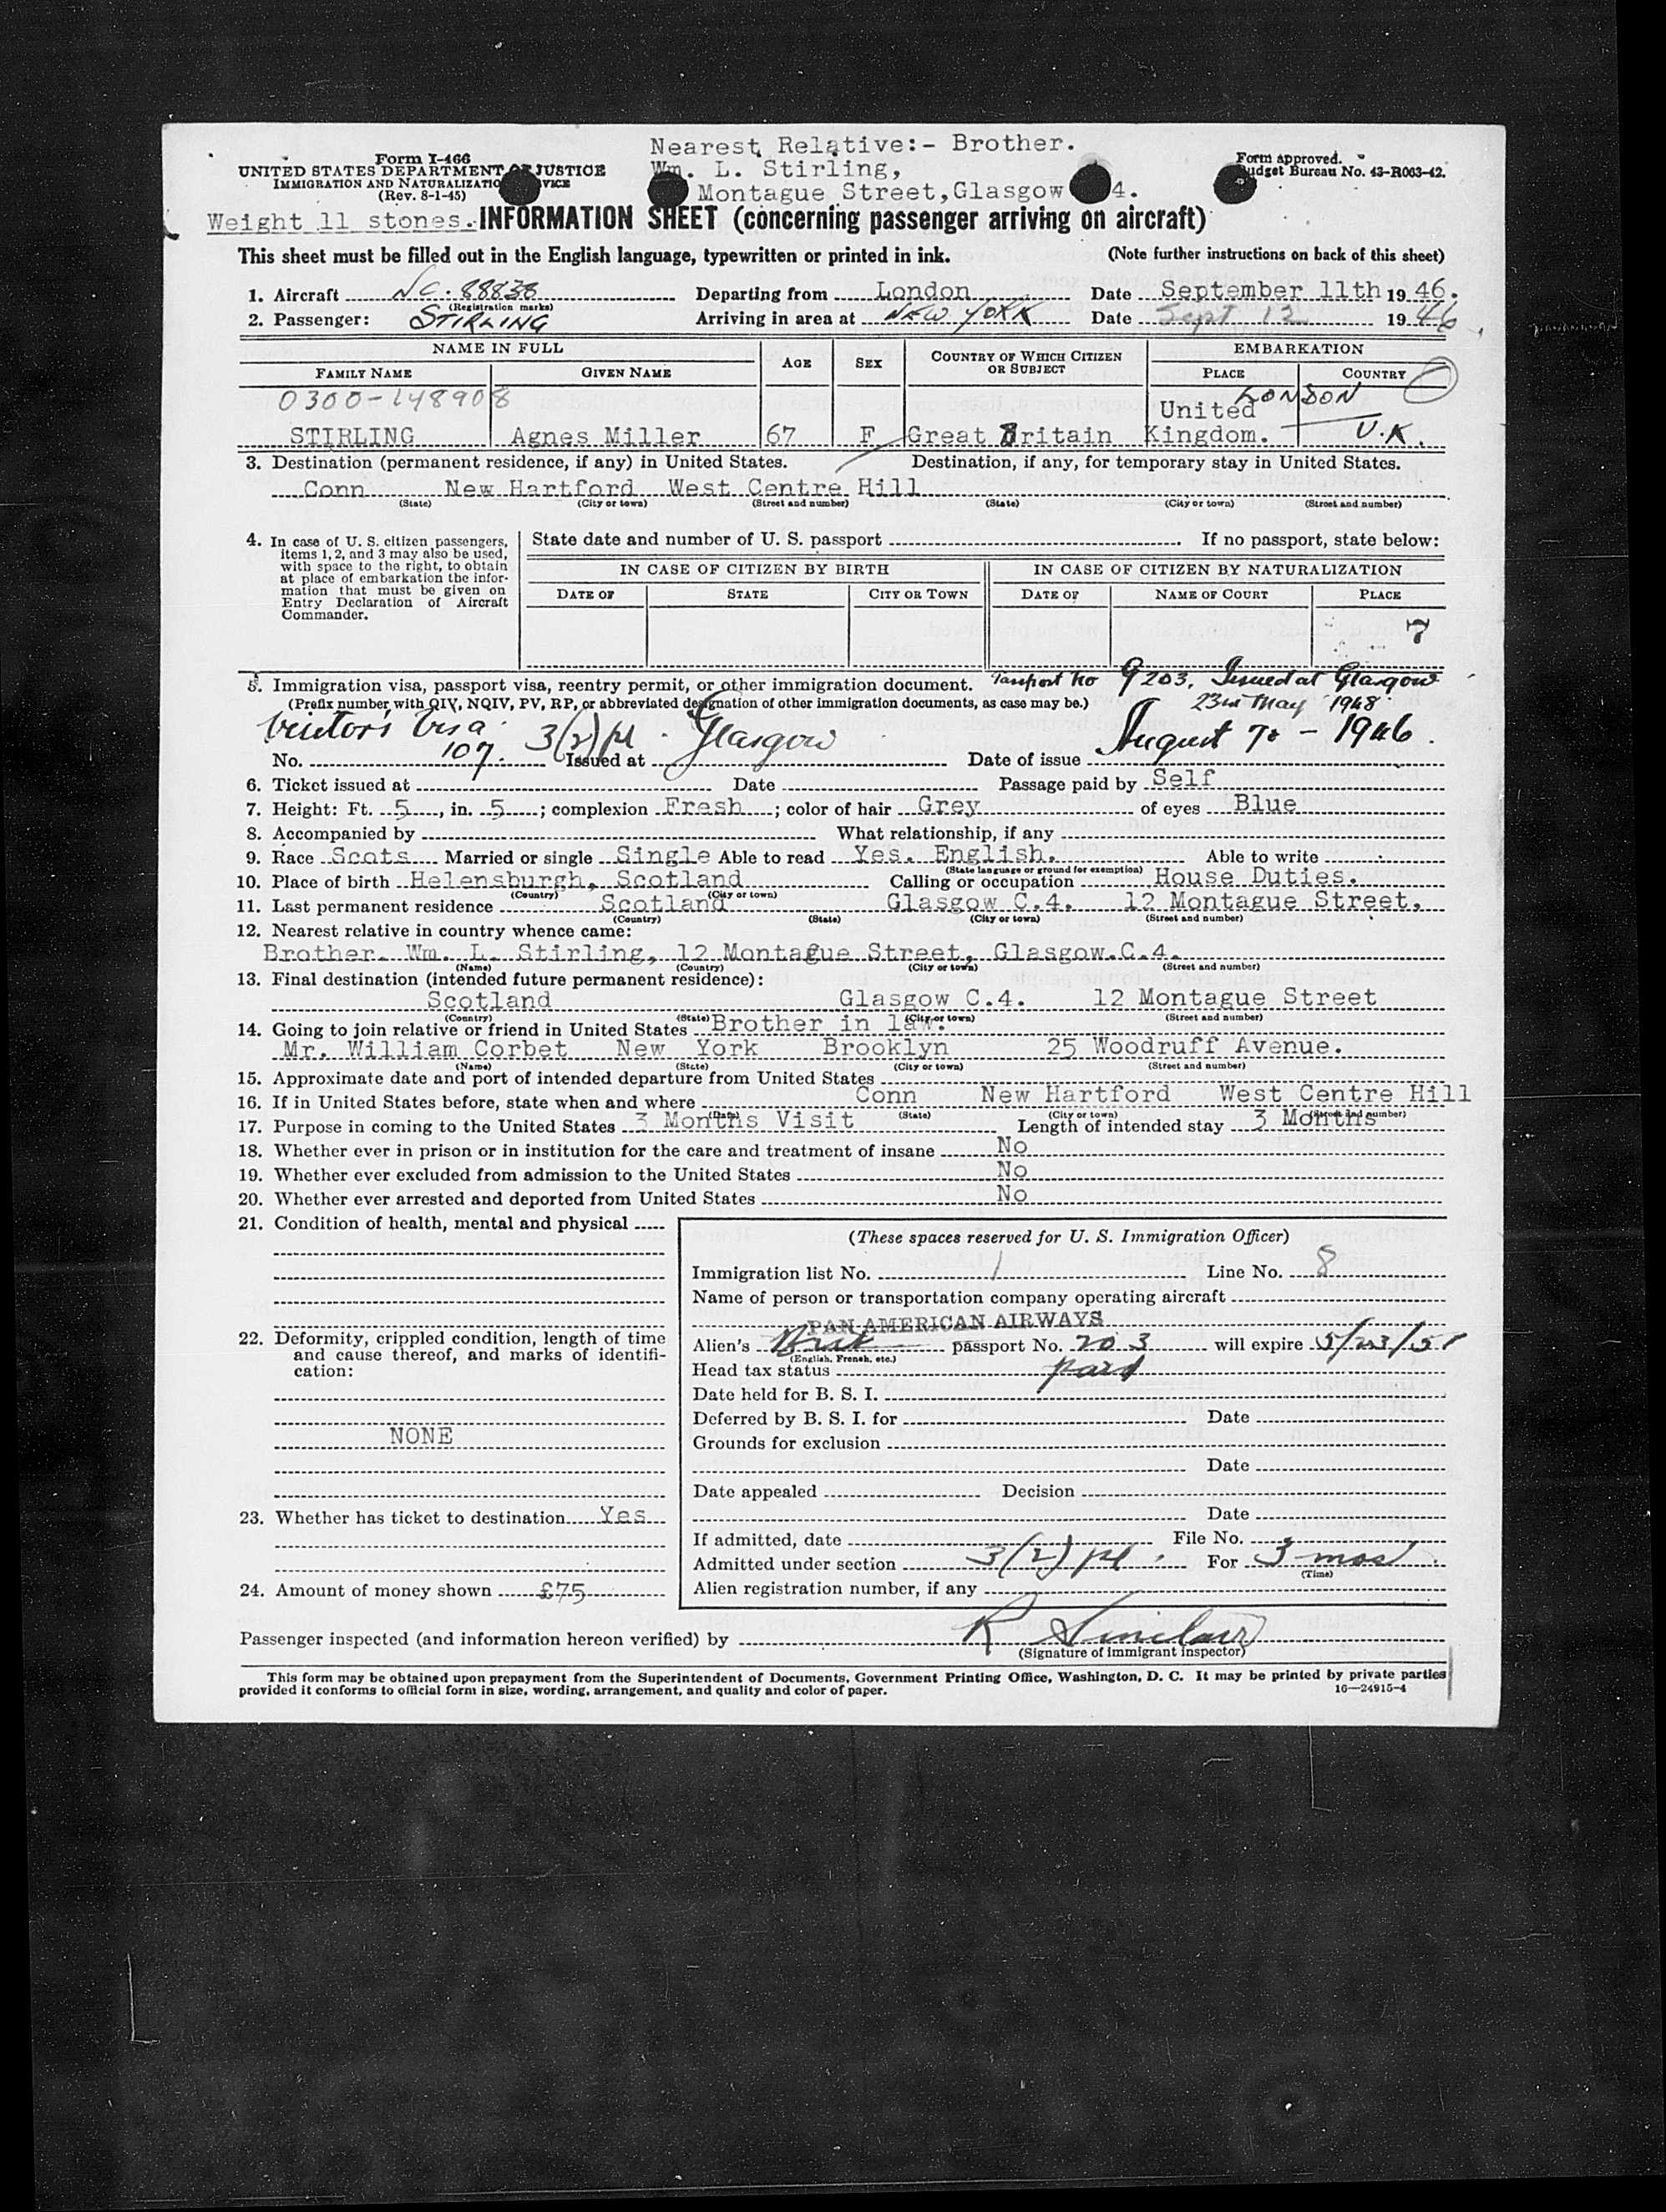 Nearest Relative:- Brother.
Form I-466
UNITED STATES DEPARTMENT OF JUSTICE
Wm. L. Stirling,
Form approved.
Budget Bureau No. 43-R063-42.
IMMIGRATION AND NATURALIZATION SERVICE
(Rev. 8-1-45)
Montague Street, Glasgow 4.
Weight 11 stones. INFORMATION SHEET (concerning passenger arriving on aircraft)
This sheet must be filled out in the English language, typewritten or printed in ink. (Note further instructions on back of this sheet)
1. Aircraft NC. 88838 Departing from London Date September 11th 1946.
(Registration marks)
2. Passenger: STIRLING Arriving in area at NEW YORK Date Sept 12 1946
NAME IN FULL AGE SEX COUNTRY OF WHICH CITIZEN OR SUBJECT EMBARKATION
FAMILY NAME GIVEN NAME PLACE COUNTRY
0300-148908 LONDON
United
STIRLING Agnes Miller 67 F Great Britain Kingdom. U.K.
3. Destination (permanent residence, if any) in United States. Destination, if any, for temporary stay in United States.
Conn New Hartford West Centre Hill
(State) (City or town) (Street and number) (State) (City or town) (Street and number)
4. In case of U. S. citizen passengers, items 1, 2, and 3 may also be used, with space to the right, to obtain at place of embarkation the information that must be given on Entry Declaration of Aircraft Commander.
State date and number of U. S. passport If no passport, state below:
IN CASE OF CITIZEN BY BIRTH IN CASE OF CITIZEN BY NATURALIZATION
DATE OF STATE CITY OR TOWN DATE OF NAME OF COURT PLACE
7
5. Immigration visa, passport visa, reentry permit, or other immigration document. Passport No 9203. Issued at Glasgow
(Prefix number with QIV, NQIV, PV, RP, or abbreviated designation of other immigration documents, as case may be.) 23rd May 1948
Visitor's Visa
No. 107. 3(2) Issued at Glasgow Date of issue August 7 - 1946.
6. Ticket issued at Date Passage paid by Self
7. Height: Ft. 5, in. 5; complexion Fresh; color of hair Grey of eyes Blue
8. Accompanied by What relationship, if any
9. Race Scots Married or single Single Able to read Yes. English. Able to write
(State language or ground for exemption)
10. Place of birth Helensburgh, Scotland Calling or occupation House Duties.
(Country) (City or town)
11. Last permanent residence Scotland Glasgow C.4. 12 Montague Street,
(Country) (State) (City or town) (Street and number)
12. Nearest relative in country whence came:
Brother. Wm. L. Stirling, 12 Montague Street, Glasgow.C.4.
(Name) (Country) (City or town) (Street and number)
13. Final destination (intended future permanent residence):
Scotland Glasgow C.4. 12 Montague Street
(Country) (State) (City or town) (Street and number)
14. Going to join relative or friend in United States Brother in law.
Mr. William Corbet New York Brooklyn 25 Woodruff Avenue.
(Name) (State) (City or town) (Street and number)
15. Approximate date and port of intended departure from United States
16. If in United States before, state when and where Conn New Hartford West Centre Hill
(Date) (State) (City or town) (Street and number)
17. Purpose in coming to the United States 3 Months Visit Length of intended stay 3 Months
18. Whether ever in prison or in institution for the care and treatment of insane No
19. Whether ever excluded from admission to the United States No
20. Whether ever arrested and deported from United States No
21. Condition of health, mental and physical
(These spaces reserved for U. S. Immigration Officer)
Immigration list No. 1 Line No. 8
Name of person or transportation company operating aircraft
PAN AMERICAN AIRWAYS
22. Deformity, crippled condition, length of time and cause thereof, and marks of identification:
NONE
Alien's Brit passport No. 203 will expire 5/23/51
(English, French, etc.)
Head tax status paid
Date held for B. S. I.
Deferred by B. S. I. for Date
Grounds for exclusion
Date
Date appealed Decision
23. Whether has ticket to destination Yes
Date
If admitted, date File No.
Admitted under section 3(2) For 3 mos
(Time)
24. Amount of money shown £75
Alien registration number, if any
Passenger inspected (and information hereon verified) by R Sinclair
(Signature of immigrant inspector)
This form may be obtained upon prepayment from the Superintendent of Documents, Government Printing Office, Washington, D. C. It may be printed by private parties
provided it conforms to official form in size, wording, arrangement, and quality and color of paper. 16—24915-4